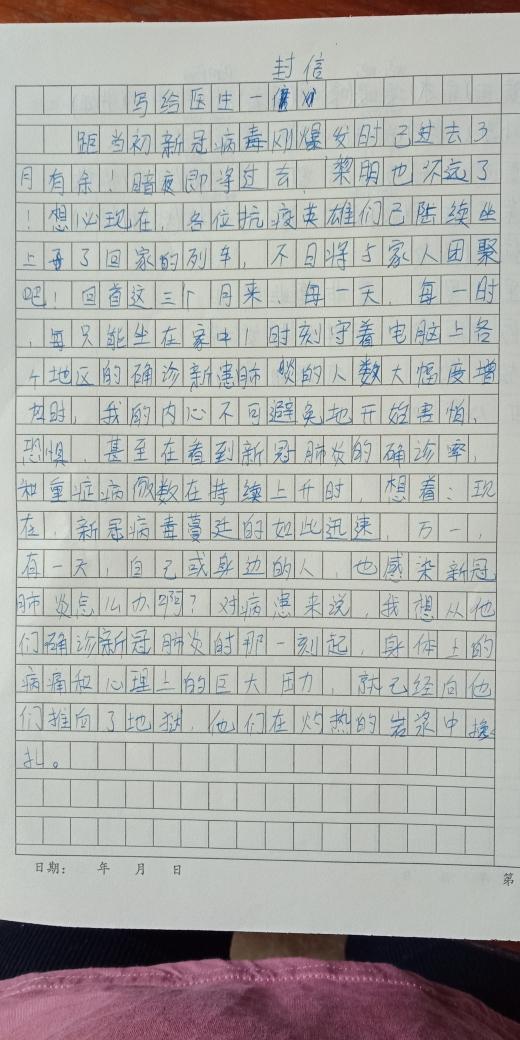 封信
写给医生一
距当初新冠病毒刚爆发时已过去3
月有余！暗夜即将过去，黎明也不远了
！想必现在，各位抗疫英雄们已陆续坐
上了回家的列车，不日将与家人团聚
吧！回首这三个月来，每一天，每一时
，每只能坐在家中！时刻守着电脑上各
个地区的确诊新患肺炎的人数大幅度增
加时，我的内心不可避免地开始害怕、
恐惧，甚至在看到新冠肺炎的确诊率，
和重症病例数在持续上升时，想着：现
在，新冠病毒蔓延的如此迅速，万一，
有一天，自己或身边的人，也感染新冠
肺炎怎么办啊？对病患来说，我想从他
们确诊新冠肺炎的那一刻起，身体上的
病痛和心理上的巨大压力，就已经向他
们推向了地狱，他们在灼热的岩浆中挣
扎。
日期： 年 月 日
第